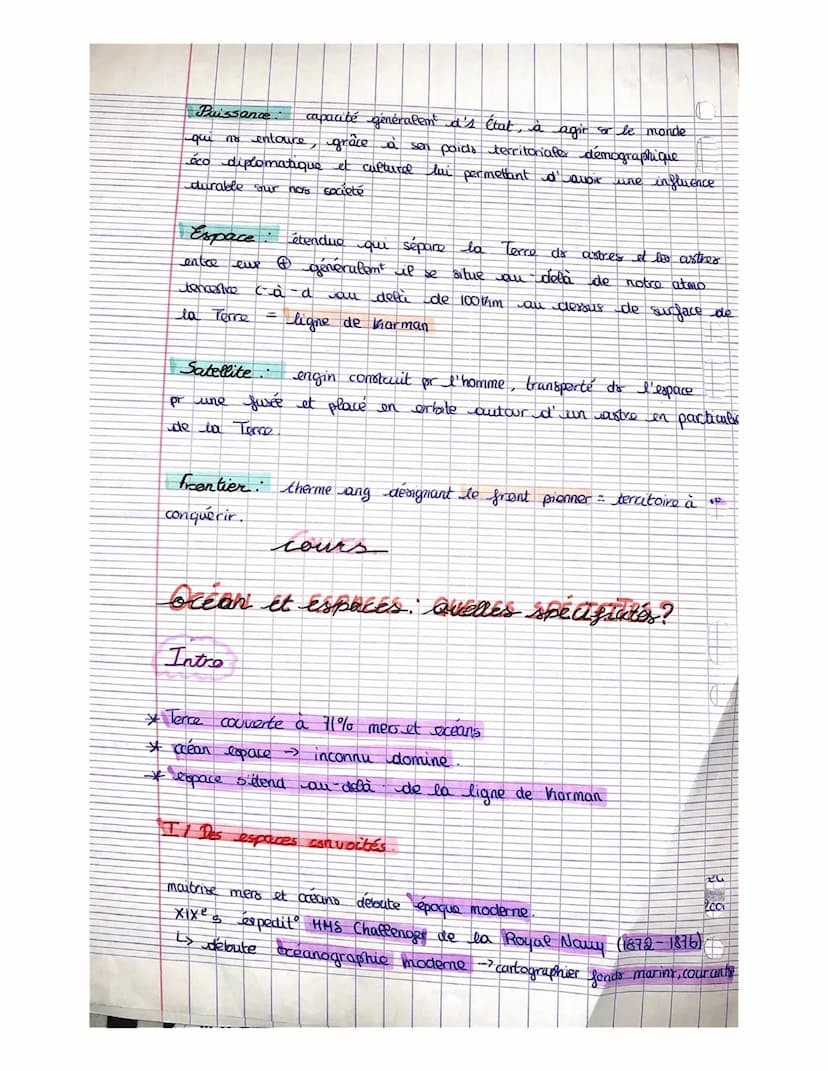 Puissance : capacité générâlemt d'1 État, à agir sr le monde
qui ns entoure, grâce à son poids territoriales démographique
éco diplomatique et culturel lui permettant d'avoir une influence
durable sur nos société
Espace : étendue qui sépare la Terre ds astres et les astres
entre eux ⊕ générâlemt il se situe au-delà de notre atmo
terrestre c-à-d au delà de 100km au dessus de surface de
la Terre = ligne de Karman
Satellite : engin construit pr l'homme, transporté ds l'espace
pr une fusée et placé en orbite autour d'un astre en particulier
de la Terre.
Frontier : therme ang désignant le front pionner = territoire à
conquérir.
Cours
Océan et espaces : quelles spécificités ?
Intro
* Terre couverte à 71% mers et océans
* océan espace → inconnu domine.
* espace s'étend au-delà de la ligne de Karman
I / Des espaces convoités.
maitrise mers et océans débute époque moderne.
XIXe s éspedit° HMS Challenger de la Royal Navy (1872-1876)
↳ débute océanographie moderne → cartographier fonds marins, courants